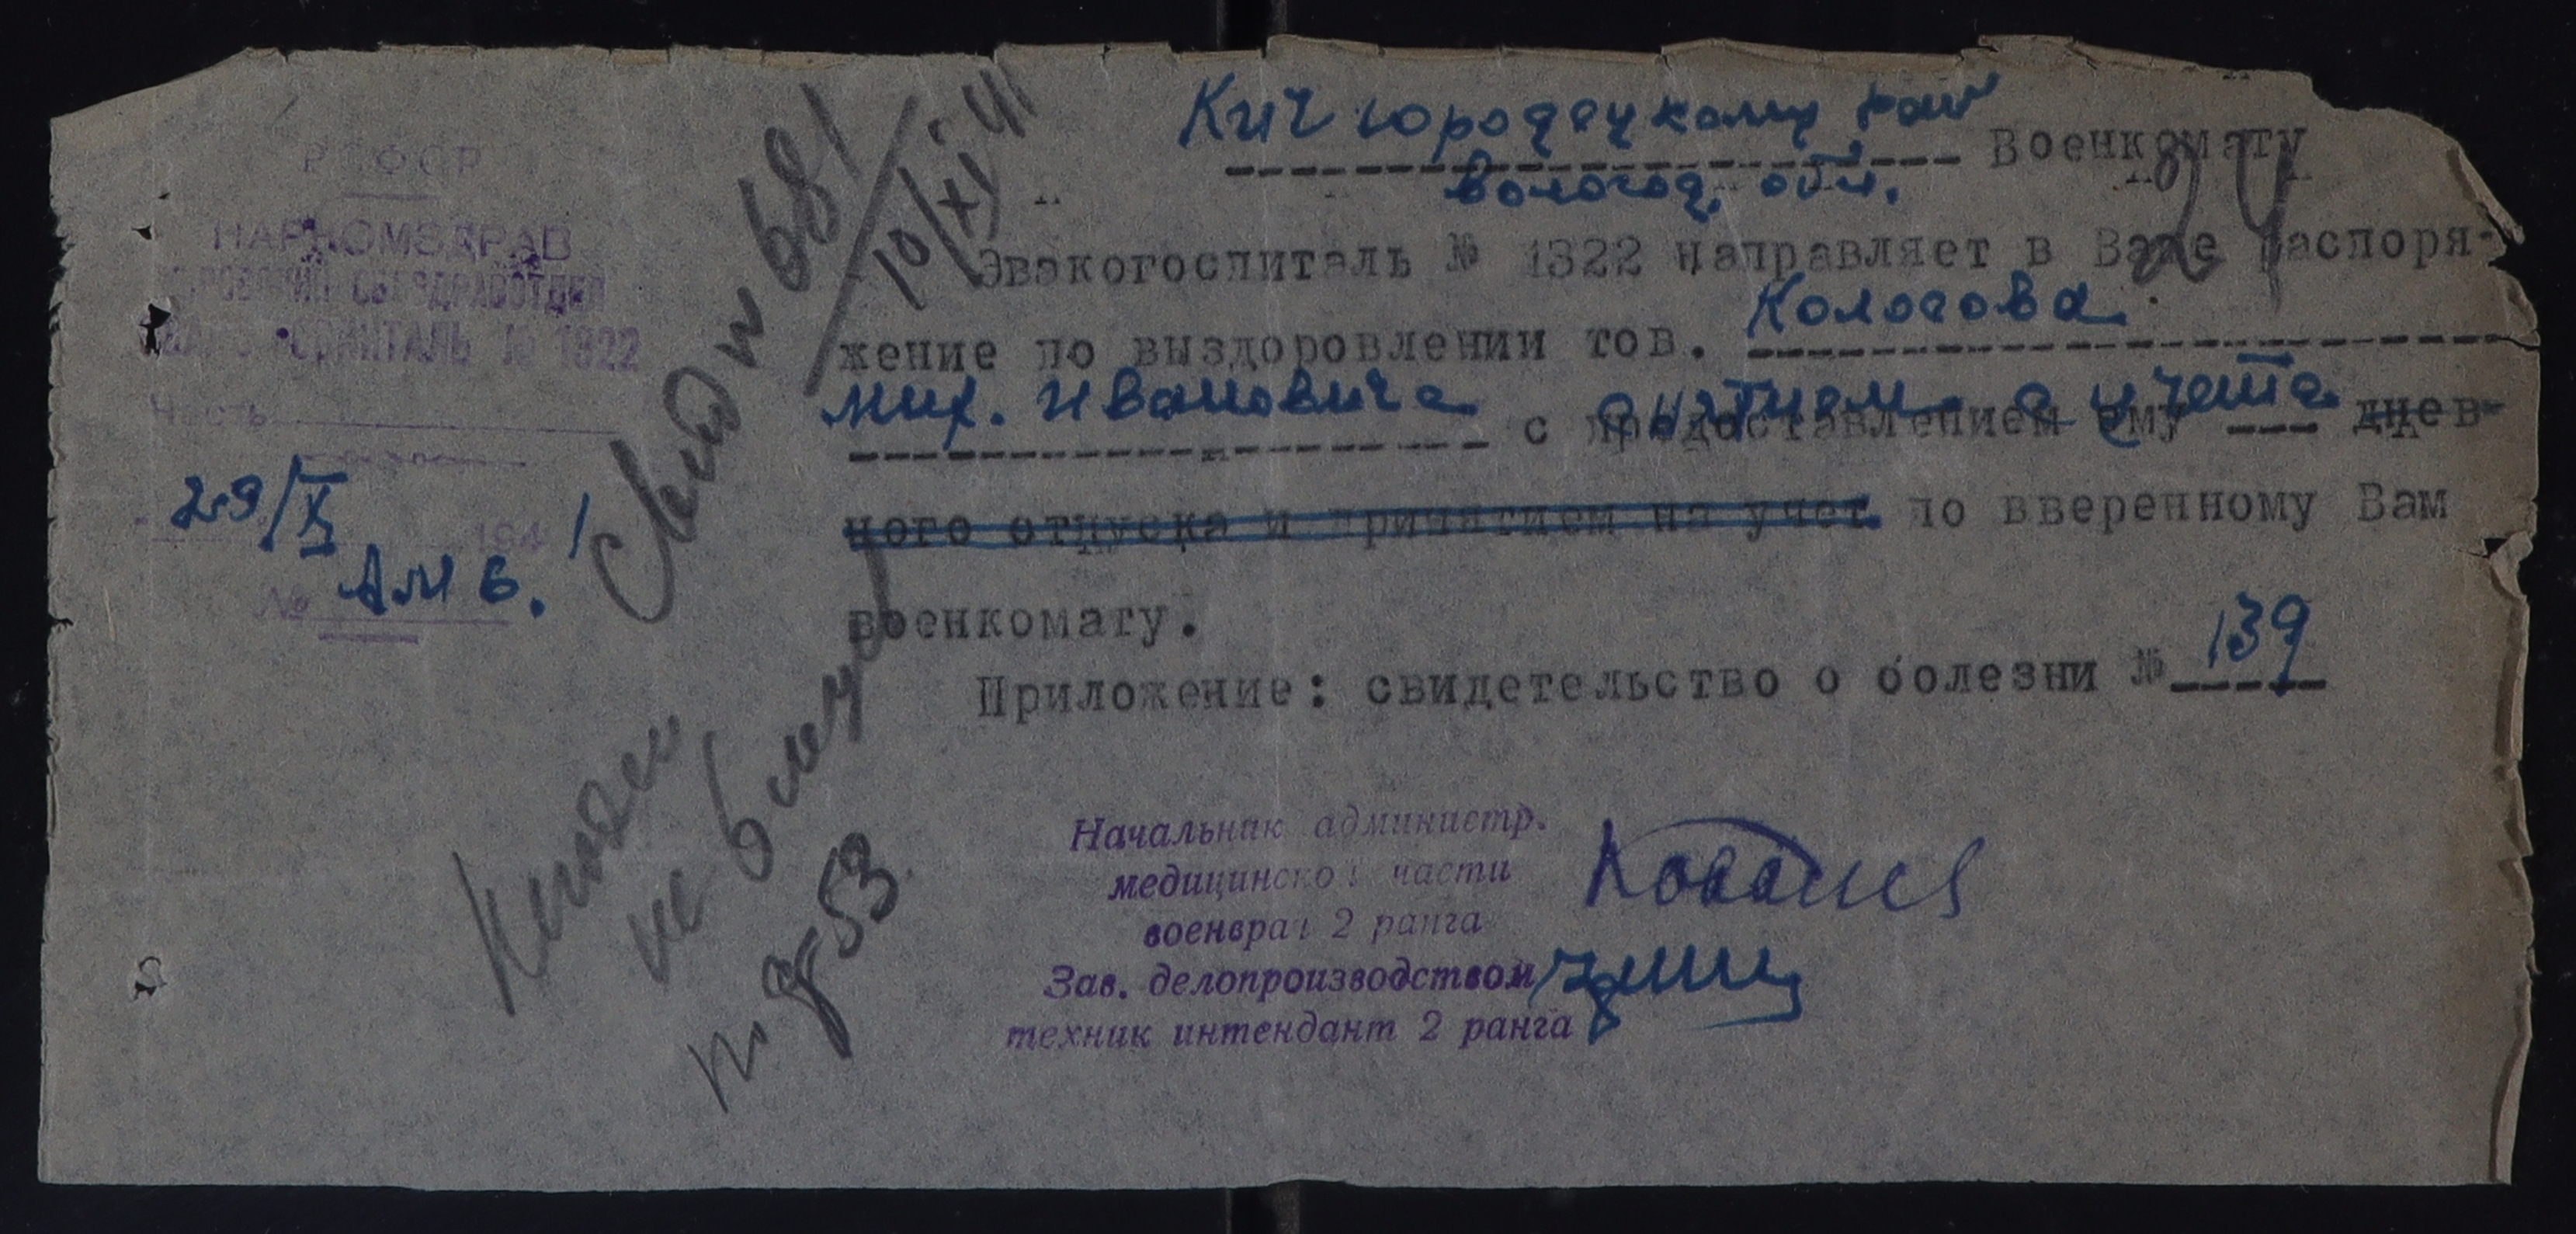 РСФСР
НАРКОМЗДРАВ
КИРОВСКИЙ ОБЛЗДРАВОТДЕЛ
ЭВАКОГОСПИТАЛЬ № 1322
Часть
29/X 1941
№ Амб.
Свид № 681
10/XI-41
Кичгородецкому рай Военкомату
Волог. обл.
24
Эвакогоспиталь № 1322 направляет в Ваше распоря-
жение по выздоровлении тов. Колосова
Мих. Ивановича с предоставлением ему снятием с учета днев-
ного отпуска и принятием на учет по вверенному Вам
военкомату.
Приложение: свидетельство о болезни № 139
не
53
Начальник администр.
медицинской части
военврач 2 ранга
Зав. делопроизводством
техник интендант 2 ранга